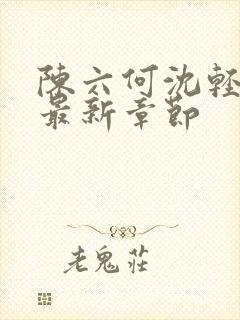 陳六何沈輕
最新章節
老鬼莊